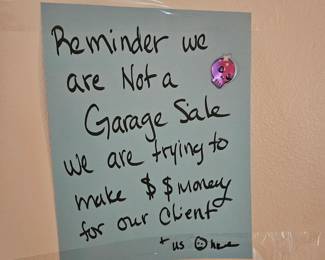 Reminder we
are Not a
Garage Sale
we are trying to
make $ $ money
for our Client
+ us